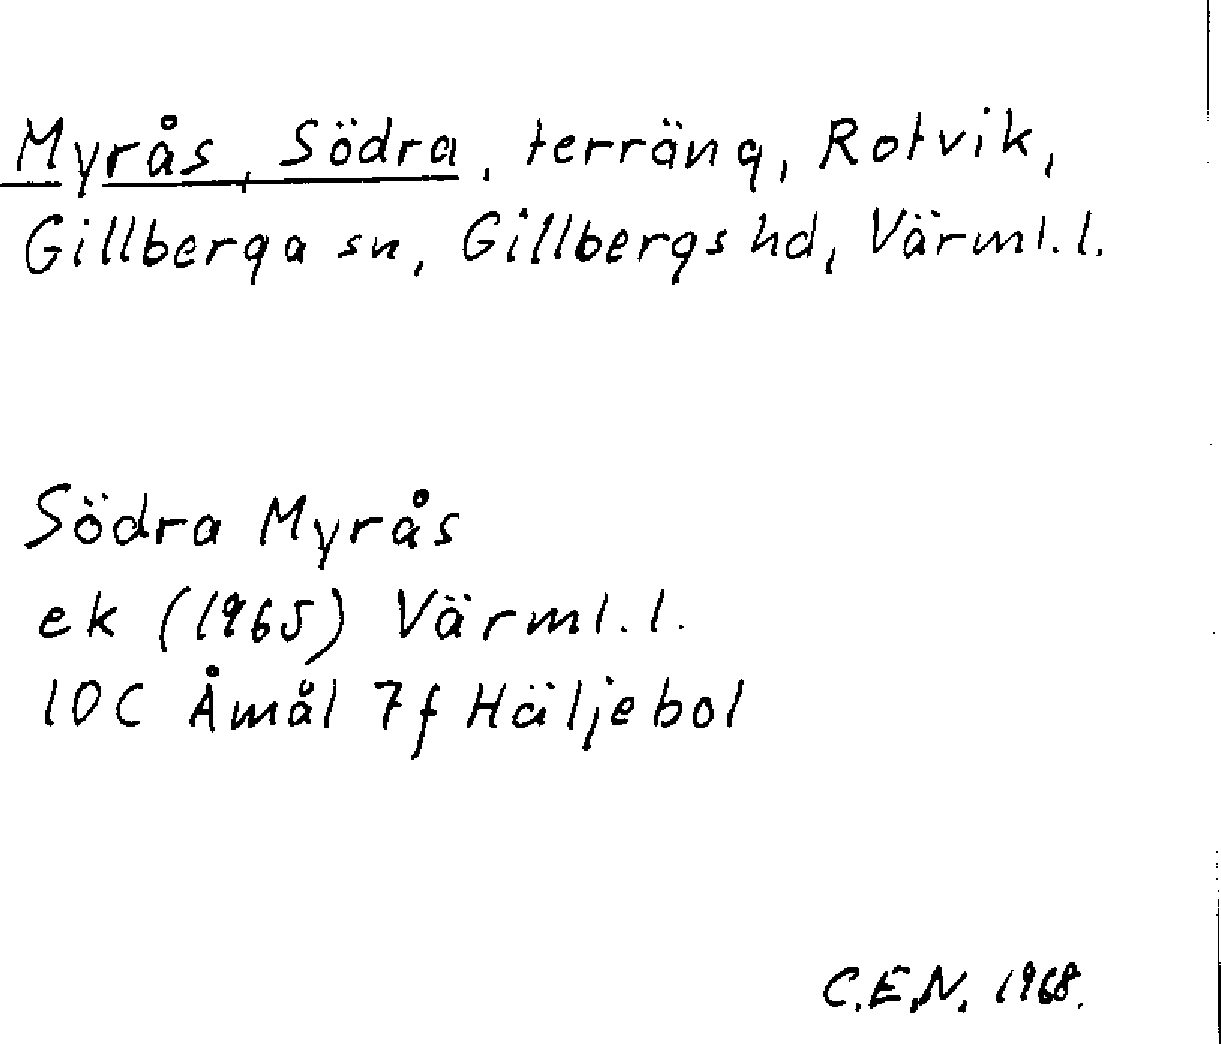 Myrås, Södra, terräng, Rotvik,
Gillberga sn, Gillbergs hd, Värml.l.
Södra Myrås
ek (1965) Värml.l.
10C Åmål 7f Häljebol
C.E.N. 1968.